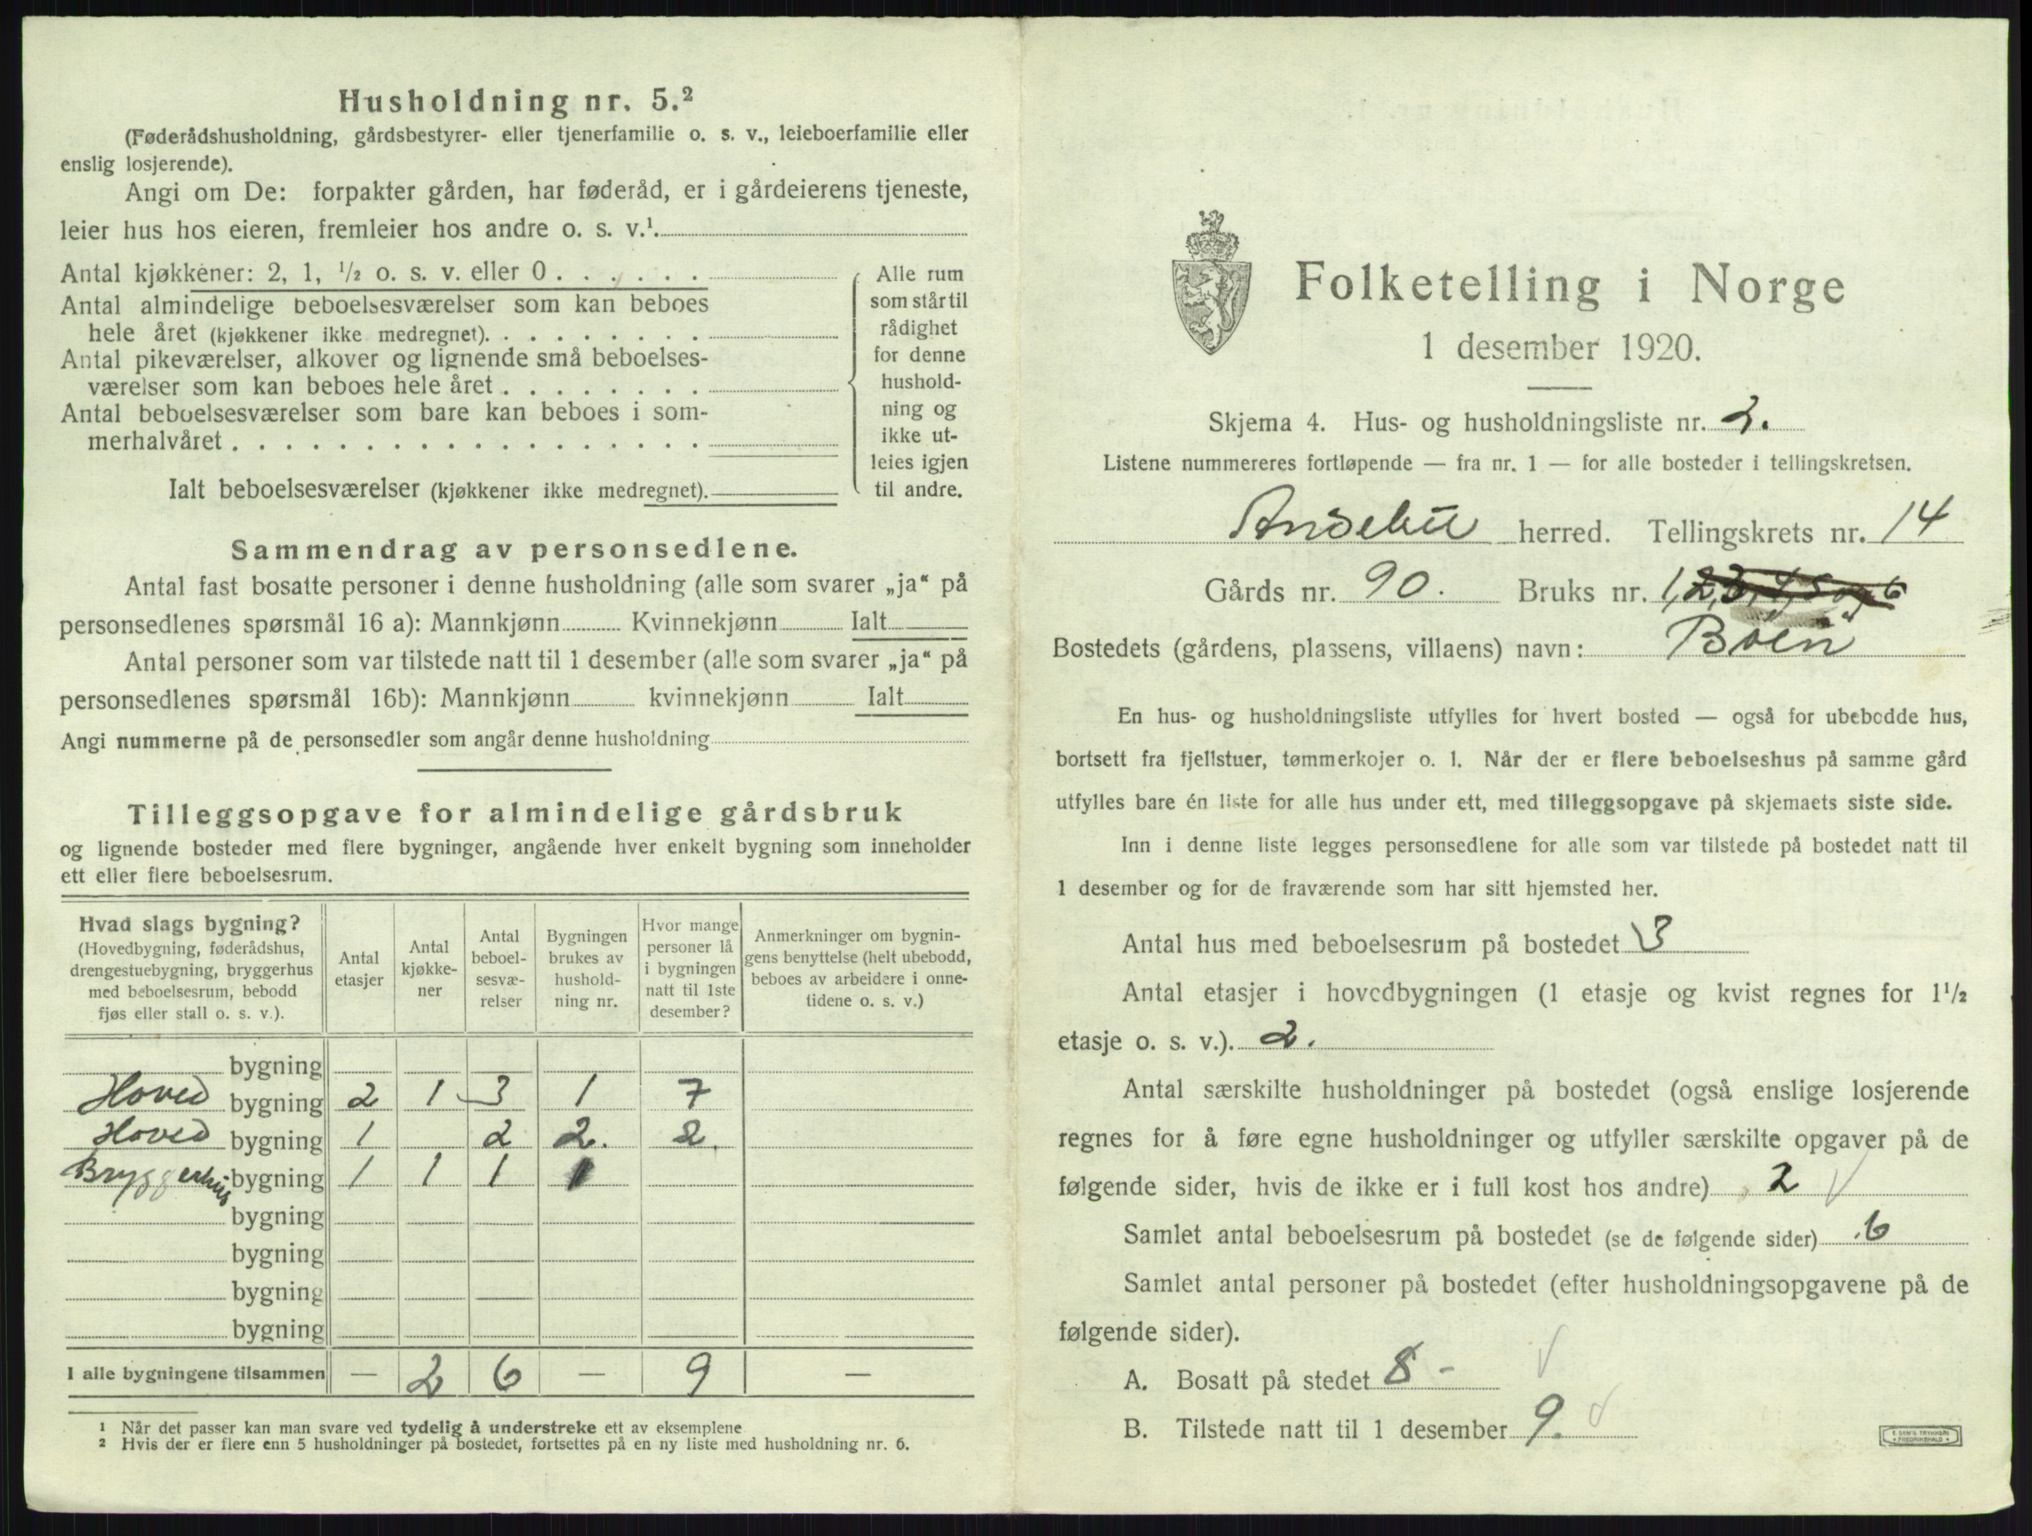 Husholdning nr. 5.²
(Føderådshusholdning, gårdsbestyrer- eller tjenerfamilie o. s. v., leieboerfamilie eller
enslig losjerende).
Angi om De: forpakter gården, har føderåd, er i gårdeierens tjeneste,
leier hus hos eieren, fremleier hos andre o. s. v.¹.
Antal kjøkkener: 2, 1, ½ o. s. v. eller 0 . . . . . .
Antal almindelige beboelsesværelser som kan beboes
hele året (kjøkkener ikke medregnet). . . . . . . . .
Antal pikeværelser, alkover og lignende små beboelses-
værelser som kan beboes hele året . . . . . . . .
Antal beboelsesværelser som bare kan beboes i som-
merhalvåret . . . . . . . . . . . . . . . . . .
Ialt beboelsesværelser (kjøkkener ikke medregnet).
Alle rum
som står til
rådighet
for denne
hushold-
ning og
ikke ut-
leies igjen
til andre.
Sammendrag av personsedlene.
Antal fast bosatte personer i denne husholdning (alle som svarer „ja“ på
personsedlenes spørsmål 16 a): Mannkjønn Kvinnekjønn Ialt
Antal personer som var tilstede natt til 1 desember (alle som svarer „ja“ på
personsedlenes spørsmål 16b): Mannkjønn kvinnekjønn Ialt
Angi nummerne på de personsedler som angår denne husholdning
Tilleggsopgave for almindelige gårdsbruk
og lignende bosteder med flere bygninger, angående hver enkelt bygning som inneholder
ett eller flere beboelsesrum.
Hvad slags bygning?
(Hovedbygning, føderådshus,
drengestuebygning, bryggerhus
med beboelsesrum, bebodd
fjøs eller stall o. s. v.).
Antal
etasjer
Antal
kjøkke-
ner
Antal
beboel-
sesvæ-
relser
Bygningen
brukes av
hushold-
ning nr.
Hvor mange
personer lå
i bygningen
natt til 1ste
desember?
Anmerkninger om bygnin-
gens benyttelse (helt ubebodd,
beboes av arbeidere i onne-
tidene o. s. v.)
bygning
Hoved bygning 2 1 3 1 7
Hoved bygning 1 2 2. 2.
Bryggerhus bygning 1 1 1 1
bygning
bygning
bygning
bygning
I alle bygningene tilsammen — 2 6 — 9 —
¹ Når det passer kan man svare ved tydelig å understreke ett av eksemplene
² Hvis der er flere enn 5 husholdninger på bostedet, fortsettes på en ny liste med husholdning nr. 6.
Folketelling i Norge
1 desember 1920.
Skjema 4. Hus- og husholdningsliste nr. 2.
Listene nummereres fortløpende — fra nr. 1 — for alle bosteder i tellingskretsen.
Andebu herred. Tellingskrets nr. 14
Gårds nr. 90. Bruks nr. 1, 2, 3, 4, 5 og 6
Bostedets (gårdens, plassens, villaens) navn: Bøen
En hus- og husholdningsliste utfylles for hvert bosted — også for ubebodde hus,
bortsett fra fjellstuer, tømmerkojer o. l. Når der er flere beboelseshus på samme gård
utfylles bare én liste for alle hus under ett, med tilleggsopgave på skjemaets siste side.
Inn i denne liste legges personsedlene for alle som var tilstede på bostedet natt til
1 desember og for de fraværende som har sitt hjemsted her.
Antal hus med beboelsesrum på bostedet 3
Antal etasjer i hovedbygningen (1 etasje og kvist regnes for 1½
etasje o. s. v.). 2.
Antal særskilte husholdninger på bostedet (også enslige losjerende
regnes for å føre egne husholdninger og utfyller særskilte opgaver på de
følgende sider, hvis de ikke er i full kost hos andre) 2
Samlet antal beboelsesrum på bostedet (se de følgende sider) 6
Samlet antal personer på bostedet (efter husholdningsopgavene på de
følgende sider).
A. Bosatt på stedet 8 -
B. Tilstede natt til 1 desember 9.